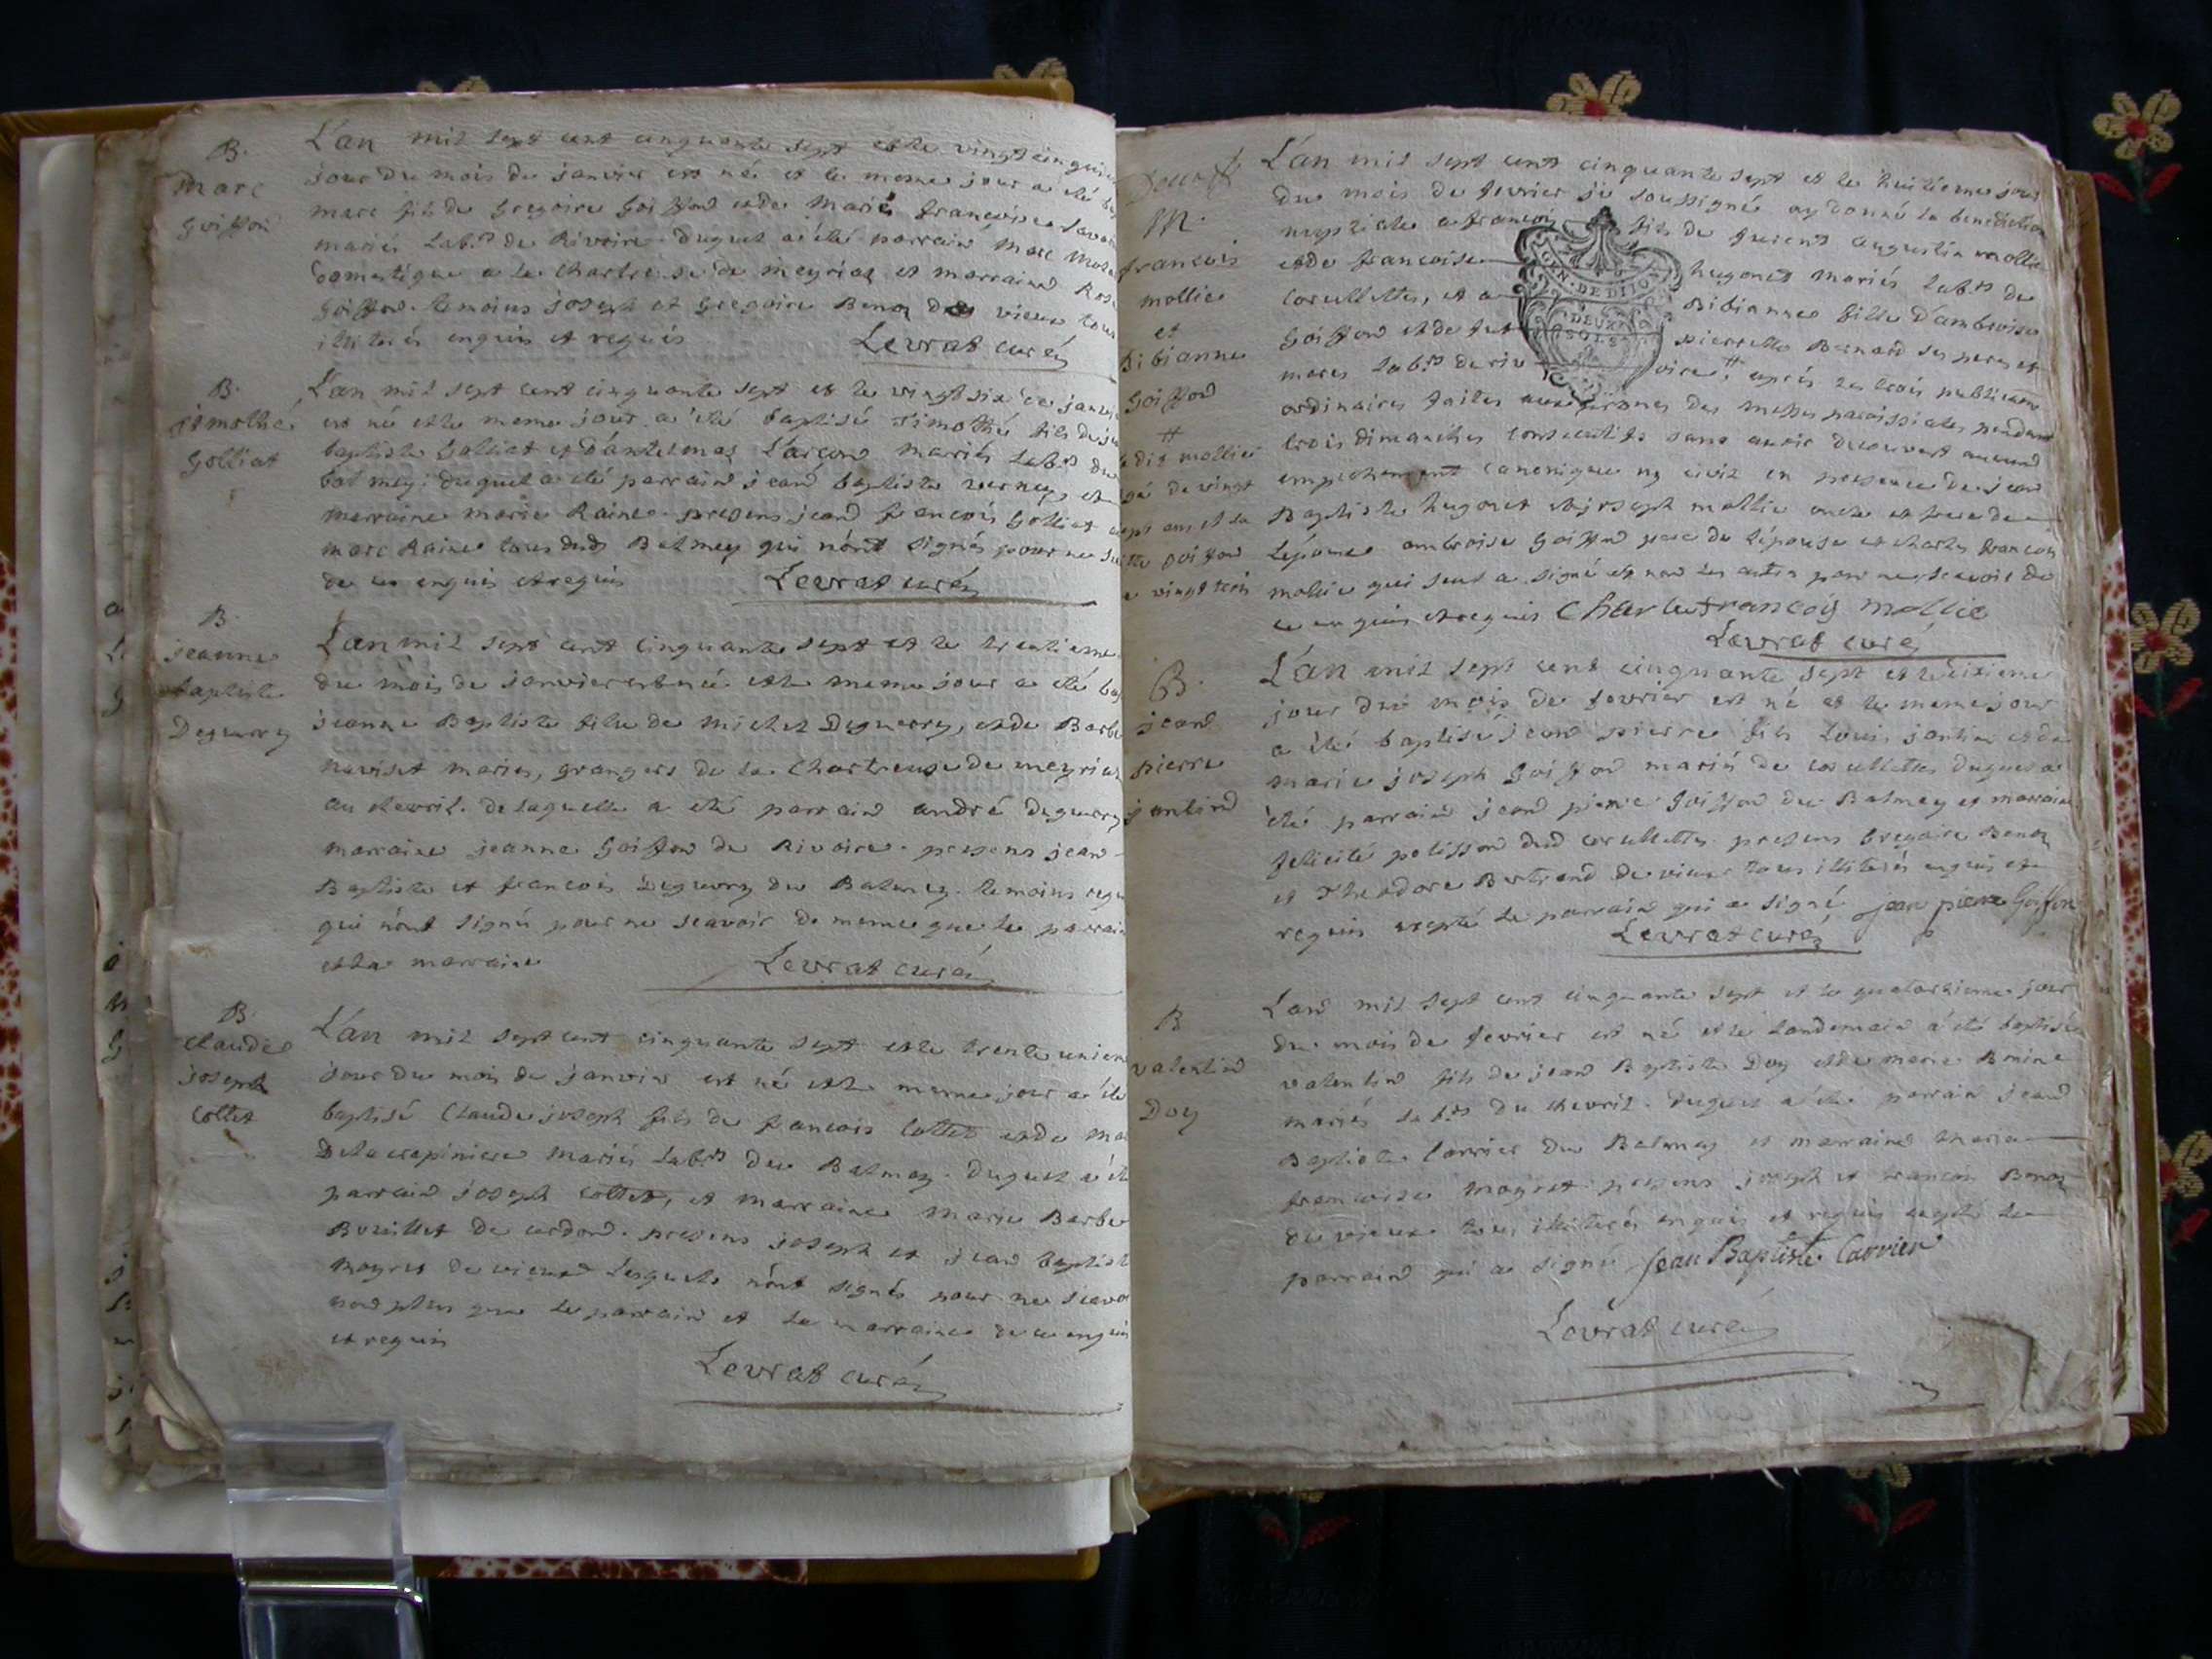 B.
Marc
Goiffon
L'an mil sept cent cinquante sept et le vingt cinquie
jour du mois de janvier est né et le meme jour a eté
marc fils de Gregoire Goiffon et de Marie francoise
mariés lab.rs de Rivoire. duquel a été parrain Marc
domestique a la Chartreuse de meyriat et marraine
Goiffon. temoins joseph et Gregoire Benoy de vieux tous
illiterés enquis et requis
Levrat curé
B.
timothé
Golliat
L'an mil sept cent cinquante sept et le vingt six de janvi
est né et le meme jour a été baptisé Timothé fils de
baptiste Golliat et d'antelmaz Larçon mariés lab.rs du
balmey. duquel a été parrain jean baptiste et
marraine marie Raine. presens jean francois Golliat
marc Raine tous dud Balmey qui n'ont signés pour ne
de ce enquis et requis
Levrat curé
B.
jeanne
baptiste
Deguerry
L'an mil sept cent cinquante sept et le trentieme
du mois de janvier est née et le meme jour a eté
jeanne Baptiste fille de michel Deguerry, et de Barbe
mariés, grangers de la Chartreuse de meyriat
au chevril. de laquelle a eté parrain andré deguerry
marraine jeanne Goiffon de Rivoire. presens jean
Baptiste et francois Deguerry du Balmey. temoins
qui n'ont signé pour ne scavoir de meme que le parrain
et la marraine
Levrat curé
B.
claude
joseph
Collet
L'an mil sept cent cinquante sept et le trente unieme
jour du mois de janvier est né et le meme jour a été
baptisé Claude joseph fils de francois Collet et de
Delacrapiniere mariés lab.rs du Balmey. duquel a été
parrain joseph Collet, et marraine Marie Barbe
Bouillet de cerdon. presens joseph et jean baptiste
moyret de vieux lesquels n'ont signés pour ne
non plus que le parrain et la marraine de ce enquis
et requis
Levrat curé
M.
francois
mollie
et
bibianne
Goiffon
#
ledit mollie
agé de vingt
sept ans et la
goiffon
de vingt trois
L'an mil sept cent cinquante sept et le huitieme jour
du mois de fevrier je soussigné ay donné la benediction
nuptiale a francois fils de furent augustin mollie
et de francoise hugonet mariés lab.rs de
corcellettes, et a Bibianne fille d'ambroise
Goiffon et de pierrette Bernard ses peres et
meres lab.rs de rivoire. # aprés les trois publications
ordinaires faites aux prones des messes paroissiales pendant
trois dimanches consecutifs sans avoir decouvert aucun
empechement canonique ny civil en presence de jean
Baptiste hugonet et joseph mollie oncle et frere de
l'epoux ambroise Goiffon pere de l'épouse et charles francois
mollie qui seul a signé et non les autres pour ne scavoir de
ce enquis et requis Charle francois mollie
Levrat curé
B.
jean
pierre
jantin
L'an mil sept cent cinquante sept et le dixieme
jour du mois de fevrier est né et le meme jour
a été baptisé jean pierre fils Louis jantin et de
marie joseph Goiffon mariés de corcellettes duquel a
été parrain jean pierre Goiffon du Balmey et marraine
felicité polisson dud corcellettes. presens Gregoire Benoy
et Theodore Bertrand de vieux tous illiterés enquis et
requis excepté le parrain qui a signé jean pierre Goiffon
Levrat curé
B
valentin
Doy
L'an mil sept cent cinquante sept et le quatorzieme jour
du mois de fevrier est né et le landemain a été baptisé
valentin fils de jean Baptiste Doy et de marie
mariés lab.rs du chevril. duquel a été parrain jean
Baptiste Carrier du Balmey et marraine marie
francoise moyret. presens joseph et francois Benoy
de vieux tous illiterés enquis et requis excepté le
parrain qui a signé Jean Baptiste Carrier
Levrat curé
GEN. DE DIJON
DEUX
SOLS